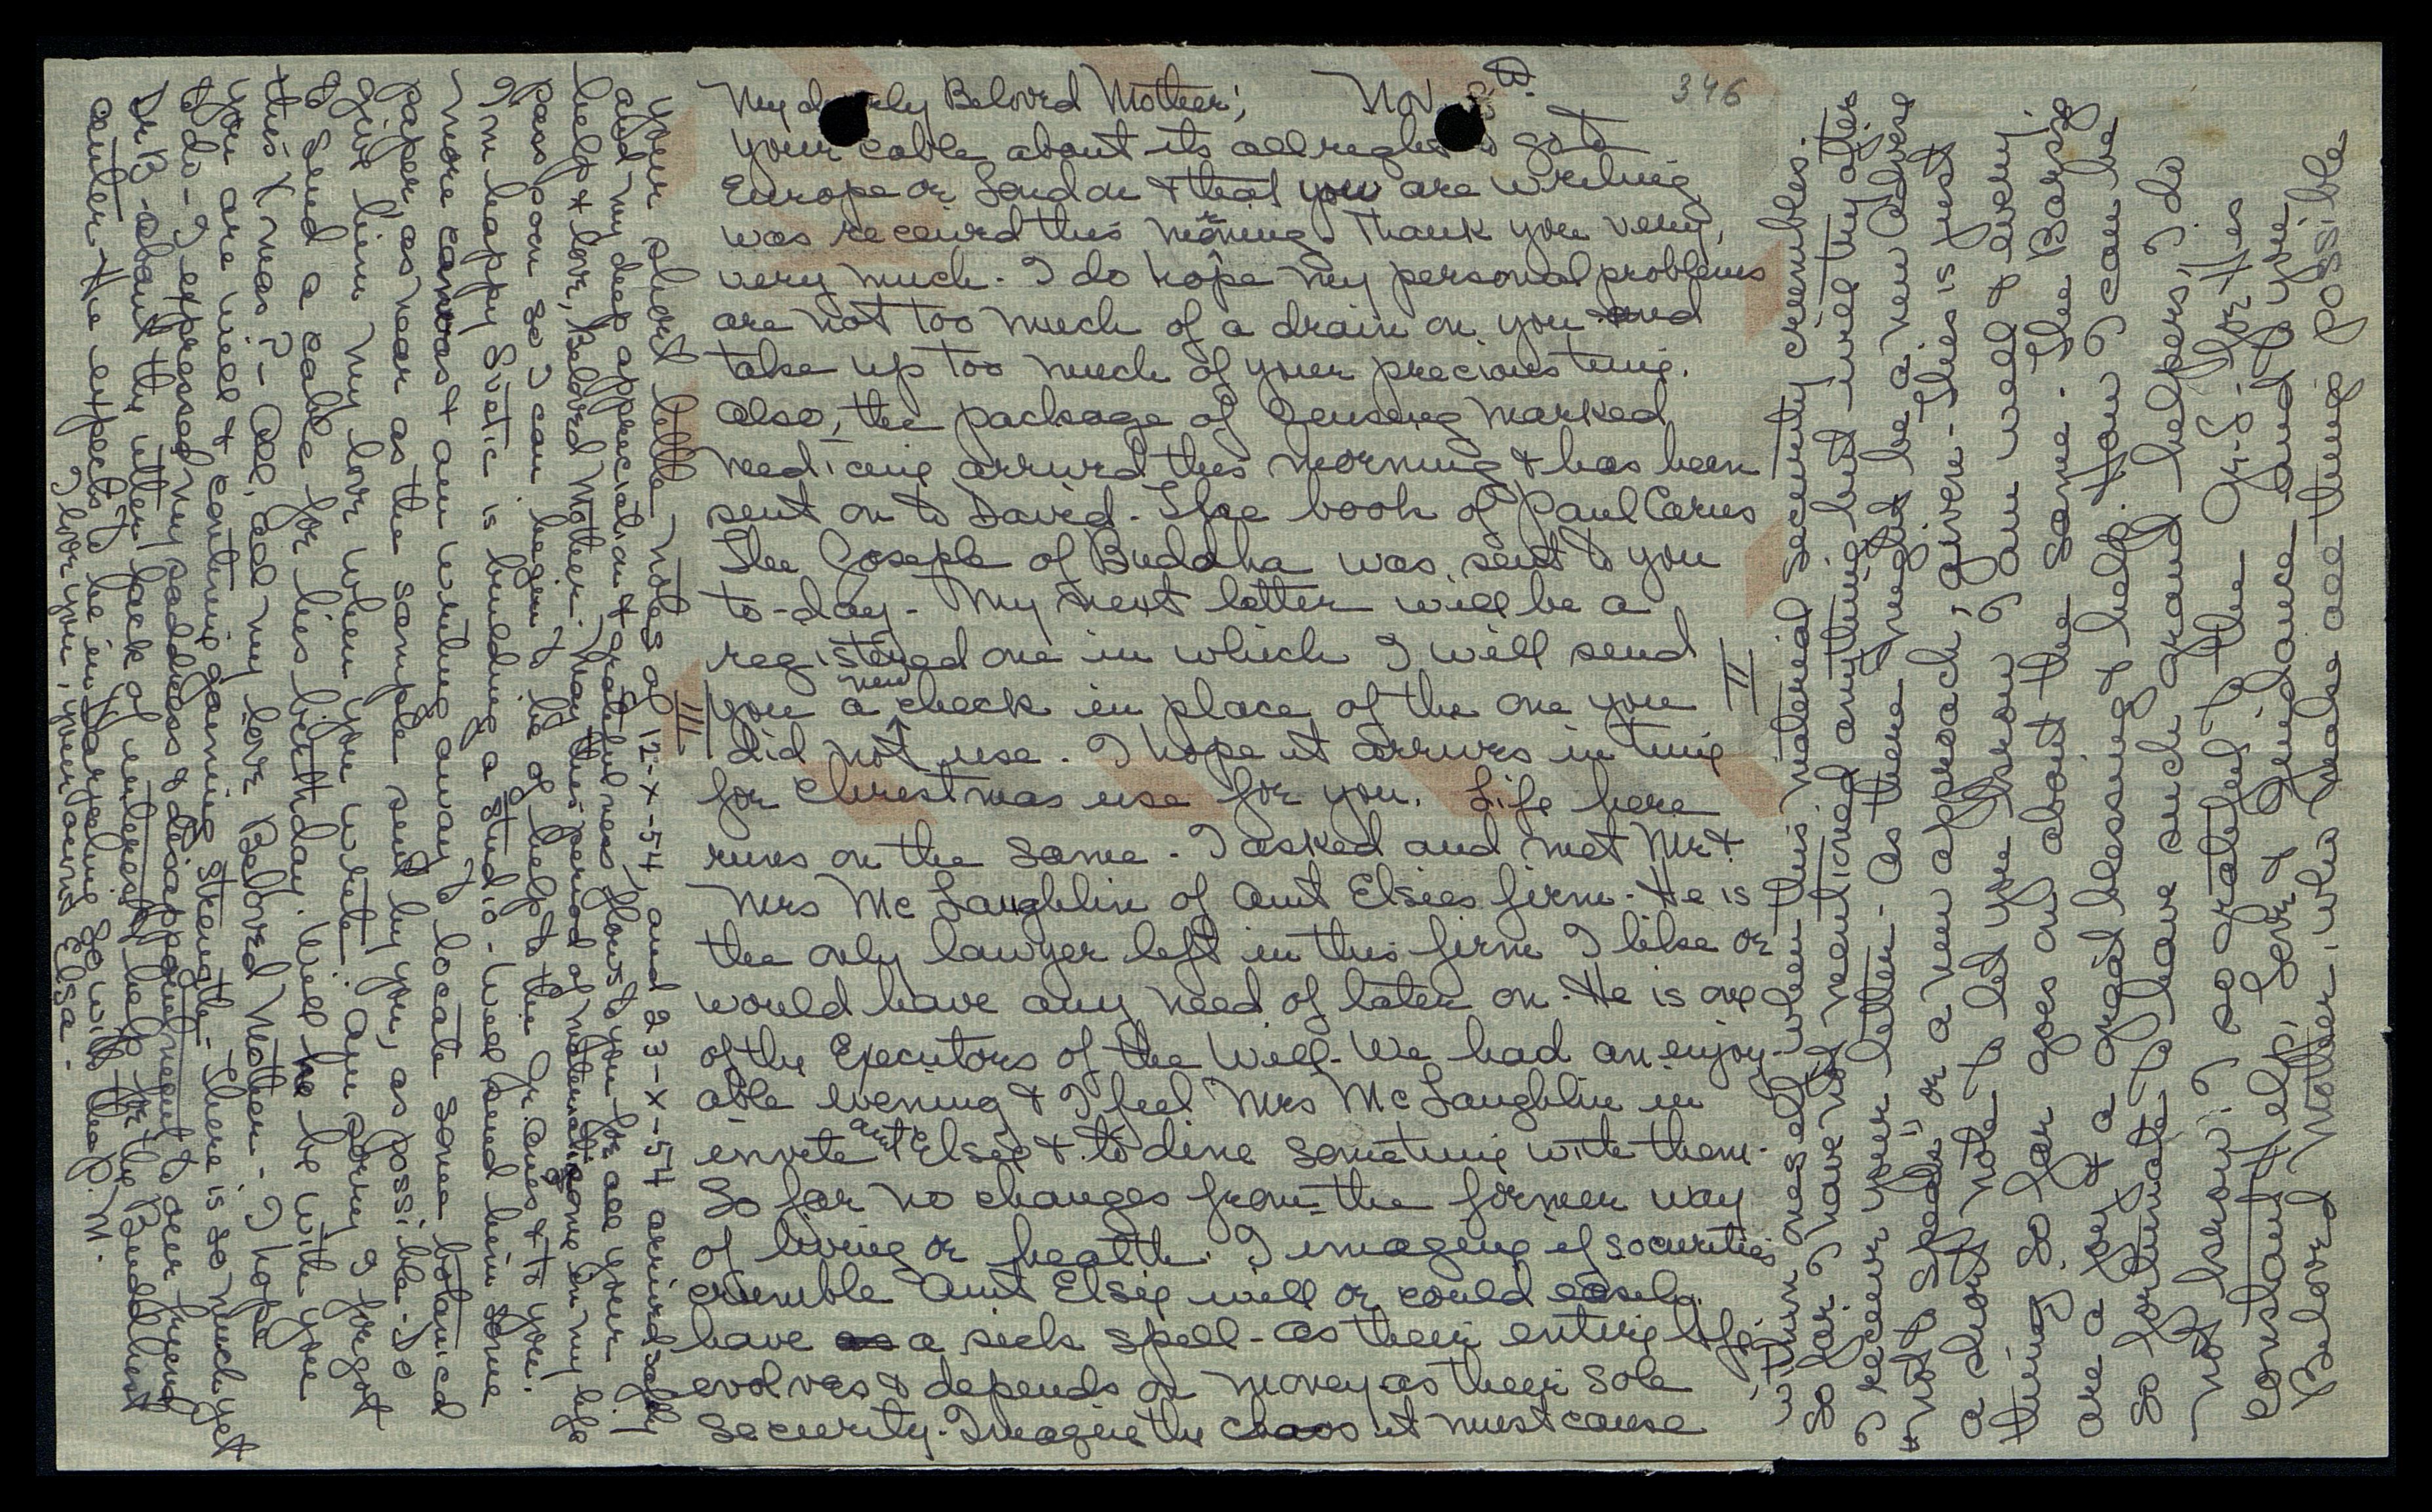 346
My dearly Beloved Mother; Nov. 3rd
your cable about its allright to go to
Europe or London & that you are writing
was received this morning. Thank you very,
very much. I do hope my personal problems
are not too much of a drain on you and
take up too much of your precious time.
Also, the package of Genseng marked
medicine arrived this morning & has been
sent on to David. The book of Paul Carus
The Gosple of Buddha was sent to you
to-day. My next letter will be a
registered one in which I will send
you a new check in place of the one you
did not use. I hope it arrives in time
for Christmas use for you. Life here
runs on the same. I asked and met Mr &
Mrs McLaughlin of Aunt Elsies firm. He is
the only lawyer left in this firm I like or
would have any need of later on. He is one
of the Executors of the Will. We had an enjoy-
able evening & I feel Mrs McLaughlin in
invite Aunt Elsie & to dine sometime with them.
So far no changes from the former way
of living or health. I imagine if securities
crumble Aunt Elsie will or could easely
have a sick spell - as their entire life
evolves & depends on money as their sole
security. Imagine the chaos it must cause
II
within oneself when this material security crumbles.
So far I have not mentioned anything but will try after
I receive your letter - as there might be a new advise
"not to speak" or a new approach, given - This is just
a short note to let you know I am well & every
thing so far goes on about the same. The Barsig
are a joy & a great blessing & help. How I can be
so fortunate to have such grand helpers, I do
not know? I so grateful to the Gr. L. for this
constant Help, Love & Guidance and to you
Beloved Mother, who make all things possible
III
Your short little notes of 12-x-54 and 23-x-54 arrived safely
and my deep appreciation & gratefulness flows to you for all your
help & love, Beloved Mother. May this period of materialistic one in my life
pass soon so I can begin to be of help to the Gr. Ones & to you.
I'm happy Svetic is building a studio - Will send him some
more canvas & am writing away to locate some botanical
paper, as near as the sample sent by you, as possible - Do
give him my love when you write. Am sorry I forgot
to send a cable for his birthday. Will he be with you
this Xmas? - All, all my love Beloved Mother - I hope
you are well & continue gaining strength - There is so much yet
to do - I expressed my saddness & disappointment to our friend
Dr B - about the utter lack of interest & help for the Buddhist
center - He expects to be in Darjeeling so will then. M.
I love you, your own Elsa -